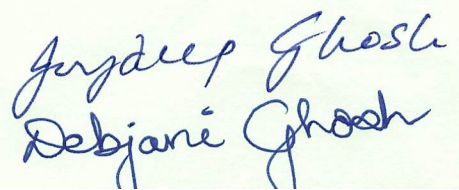 Joydeep Ghosh
Debjani Ghosh